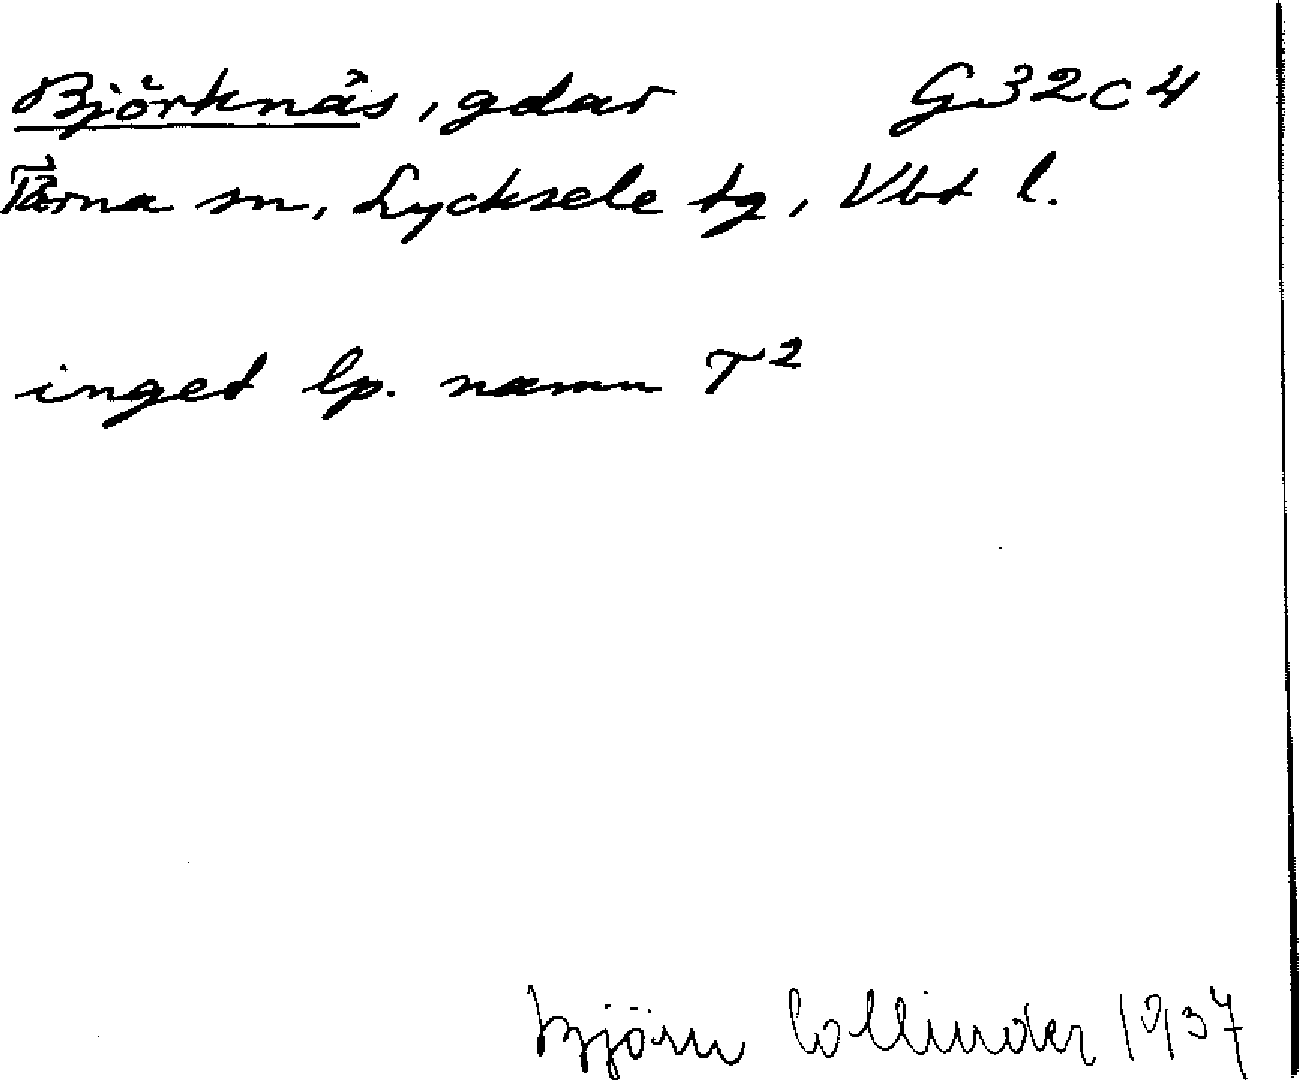 Björknäs, gdar G32c4
Tärna sn, Lycksele tg, Vbt l.
inget lp. namn T²
Björn Collinder 1937